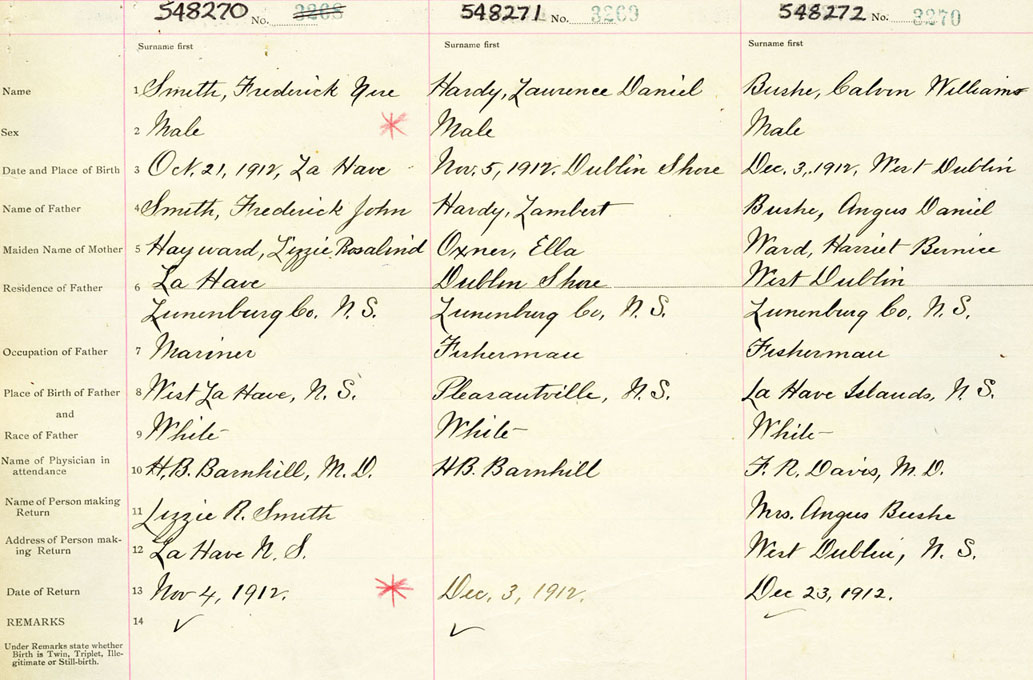 548270 No. 3268 548271 No. 3269 548272 No. 3270
Surname first Surname first Surname first
Name 1 Smith, Frederick Hardy, Lawrence Daniel Bushe, Calvin Williams
Sex 2 Male Male Male
Date and Place of Birth 3 Oct. 21, 1912, La Have Nov. 5, 1912. Dublin Shore Dec. 3, 1912, West Dublin
Name of Father 4 Smith, Frederick John Hardy, Lambert Bushe, Angus Daniel
Maiden Name of Mother 5 Hayward, Lizzie Rosalind Oxner, Ella Ward, Harriet Bernice
Residence of Father 6 La Have Dublin Shore West Dublin
Lunenburg Co, N. S. Lunenburg Co, N. S. Lunenburg Co, N. S.
Occupation of Father 7 Mariner Fisherman Fisherman
Place of Birth of Father 8 West La Have, N. S. Pleasantville, N. S. La Have Islands, N S.
and
Race of Father 9 White White White
Name of Physician in attendance 10 H. B. Barnhill, M. D. H B. Barnhill F. R. Davis, M. D.
Name of Person making Return 11 Lizzie R. Smith Mrs. Angus Bushe
Address of Person mak-
ing Return 12 La Have N. S. West Dublin, N. S.
Date of Return 13 Nov 4, 1912. Dec. 3, 1912. Dec 23, 1912.
REMARKS 14
Under Remarks state whether
Birth is Twin, Triplet, Ille-
gitimate or Still-birth.